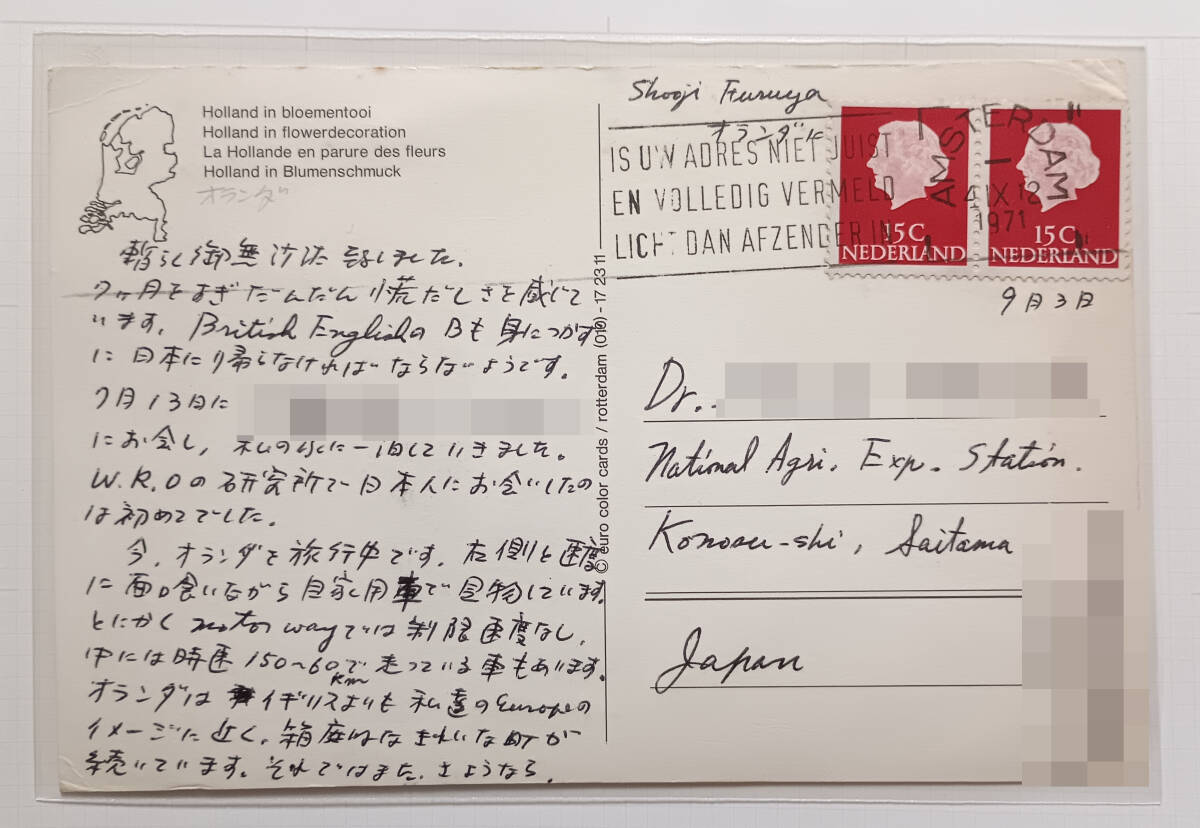 Holland in bloementooi
Holland in flowerdecoration
La Hollande en parure des fleurs
Holland in Blumenschmuck
オランダ
暫らく御無沙汰致しました。
7ヶ月をすぎだんだん慌だしさを感じて
います。British EnglishのBも身につかず
に日本に帰らなければならないようです。
7月13日に
にお会し、私の家に一泊していきました。
W.R.Oの研究所で日本人にお会いしたの
は初めてでした。
今、オランダを旅行中です。左側と速度
に面喰いながら自家用車で見物しています。
とにかくmotor wayでは制限速度なし、
中には時速150~60kmで走っている車もあります。
オランダはイギリスよりも私達のEuropeの
イメージに近く、箱庭的なきれいな町が
続いています。それではまた、さようなら。
© euro color cards / rotterdam (010) - 17 23 11
Shooji Furuya
オランダに
IS UW ADRES NIET JUIST
EN VOLLEDIG VERMELD
LICHT DAN AFZENDER IN
AMSTERDAM
IX 12
1971
15C
NEDERLAND
15C
NEDERLAND
9月3日
Dr.
National Agri. Exp. Station.
Konosu-shi, Saitama
Japan